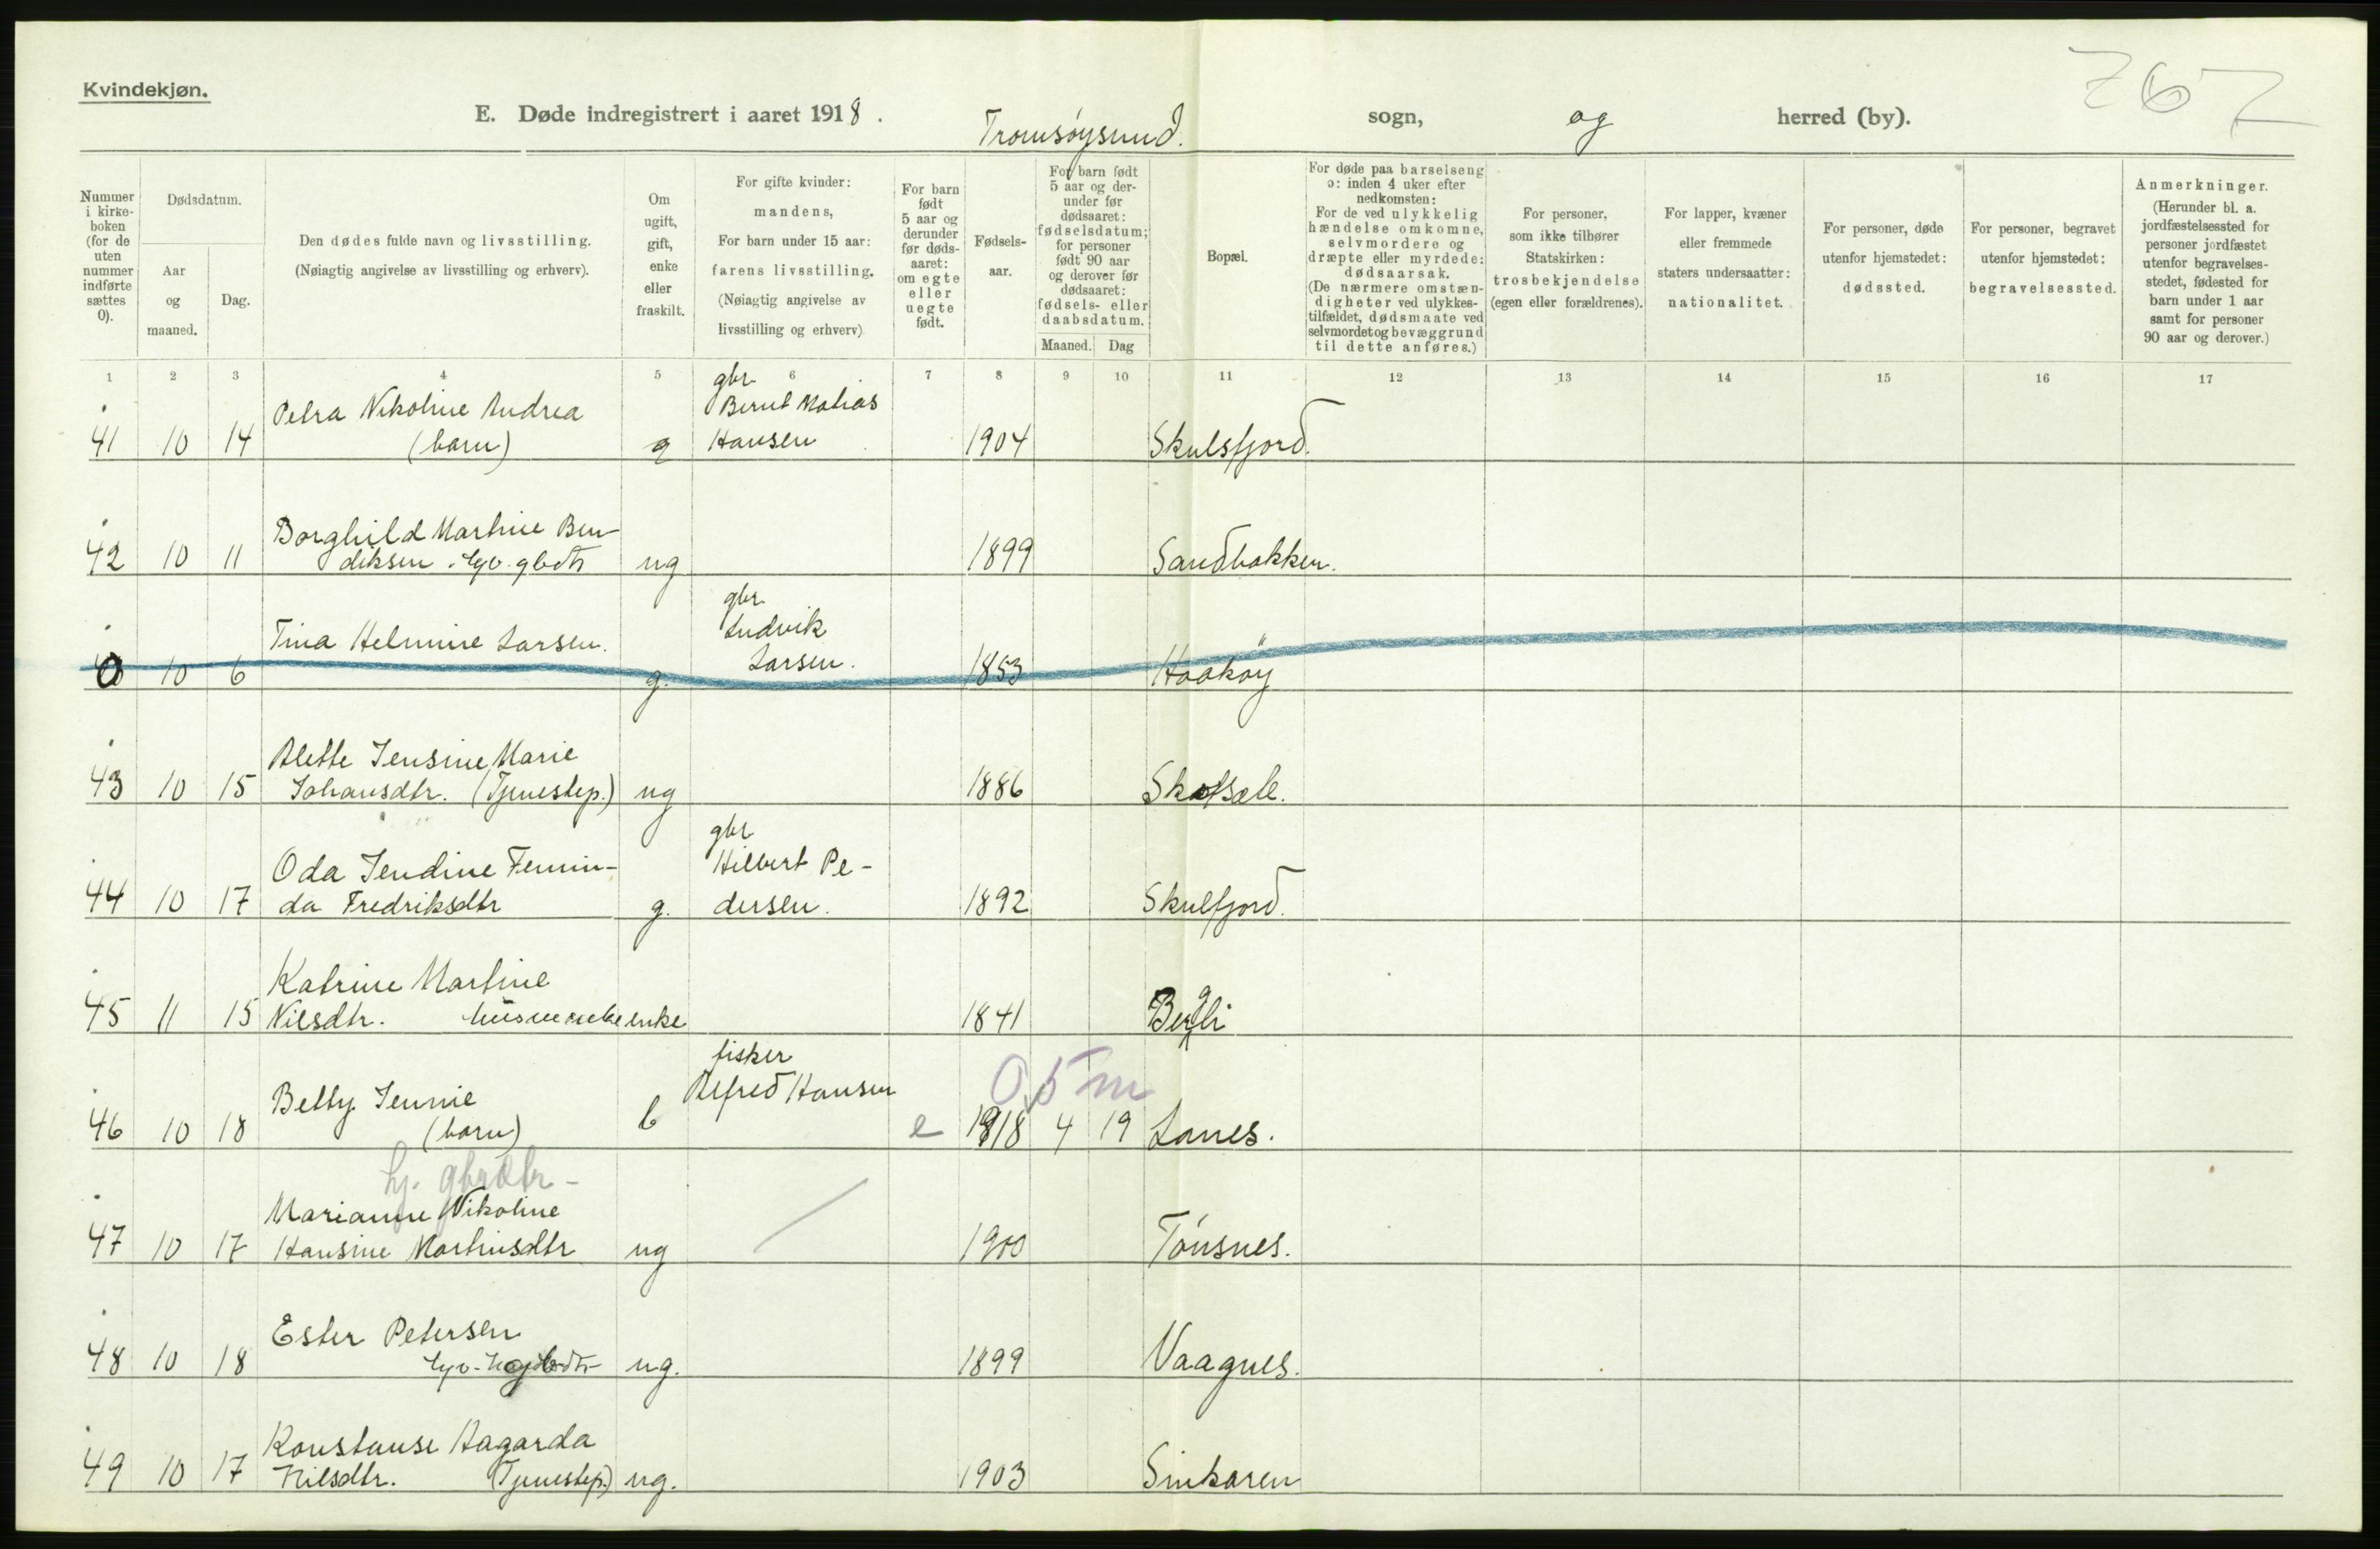 Kvindekjøn.
E. Døde indregistrert i aaret 1918. Tromsøysund. sogn, og herred (by).
767
Nummer i kirke-boken (for de uten nummer indførte sættes 0).
Dødsdatum.
Aar og maaned.
Dag.
Den dødes fulde navn og livsstilling.
(Nøiagtig angivelse av livsstilling og erhverv).
Om ugift, gift, enke eller fraskilt.
For gifte kvinder: mandens,
For barn under 15 aar: farens livsstilling.
(Nøiagtig angivelse av livsstilling og erhverv)
For barn født 5 aar og derunder før døds-aaret: om egte eller uegte født.
Fødsels-aar.
For barn født 5 aar og der-under før dødsaaret: fødselsdatum; for personer født 90 aar og derover før dødsaaret: fødsels- eller daabsdatum.
Maaned. Dag
Bopæl.
For døde paa barselseng ɔ: inden 4 uker efter nedkomsten:
For de ved ulykkelig hændelse omkomne, selvmordere og dræpte eller myrdede: dødsaarsak.
(De nærmere omstæn-digheter ved ulykkes-tilfældet, dødsmaate ved selvmordet og bevæggrund til dette anføres.)
For personer, som ikke tilhører Statskirken: trosbekjendelse (egen eller forældrenes).
For lapper, kvæner eller fremmede staters undersaatter: nationalitet.
For personer, døde utenfor hjemstedet: dødssted.
For personer, begravet utenfor hjemstedet: begravelsessted.
Anmerkninger.
(Herunder bl. a. jordfæstelsessted for personer jordfæstet utenfor begravelses-stedet, fødested for barn under 1 aar samt for personer 90 aar og derover.)
1 2 3 4 5 6 7 8 9 10 11 12 13 14 15 16 17
gbr.
Petra Nikoline Andrea Bernt Matias
41 10 14 (barn) g Hansen 1904 Skulsfjord.
Borghild Martine Ben-
42 10 11 diksen. ug 1899 Sandbakken.
gbr.
Tina Helmine Larsen. Ludvik
0 10 6 g. Larsen. 1853 Haakøy
Alette Jensine Marie
43 10 15 Johansdtr. (Tjenestep.) ug 1886 Skatsæle.
gbr
Oda Jendine Femin- Hilbert Pe-
44 10 17 da Fredriksdtr g. dersen. 1892 Skulfjord.
Katrine Martine
45 11 15 Nilsdtr. enke 1841 Bergli
fisker
Betty Jennie Alfred Hansen 0,5 m
46 10 18 (barn) b e 1918 4 19 Lanes.
hj. gbrdtr -
Marianne Nikoline
47 10 17 Hansine Martinsdtr ug 1900 Tønsnes.
Ester Petersen
48 10 18 ug. 1899 Vaagnes.
Konstanse Hagarda
49 10 17 Nilsdtr. (Tjenestep.) ug. 1903 Sinkaren